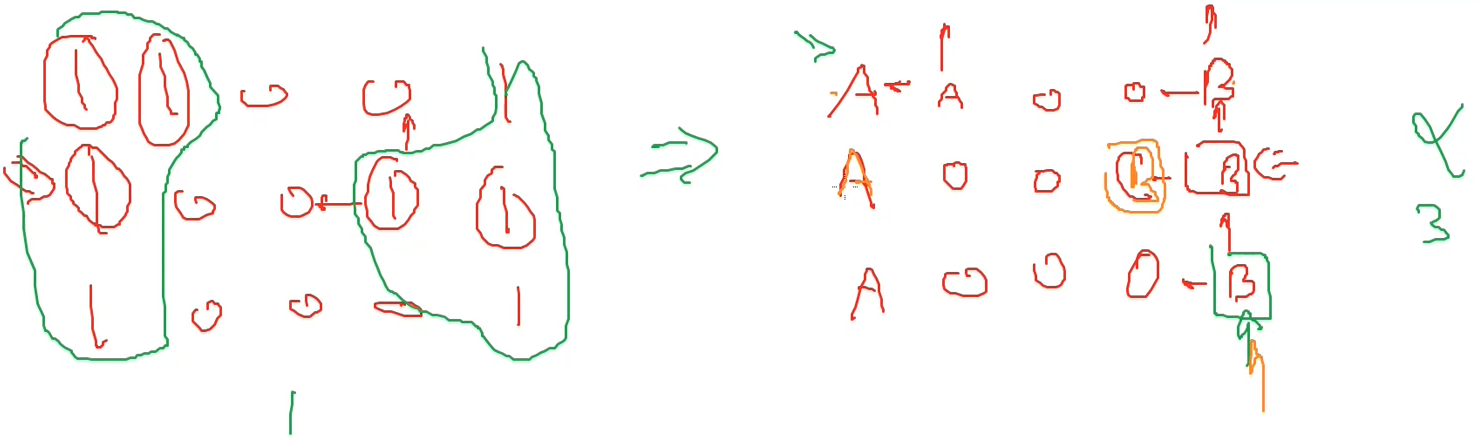 1 1 0 0 1
1 0 0 1 1
1 0 0 0 1
1
A A 0 0 B
A 0 0 B B
A 0 0 0 B
3